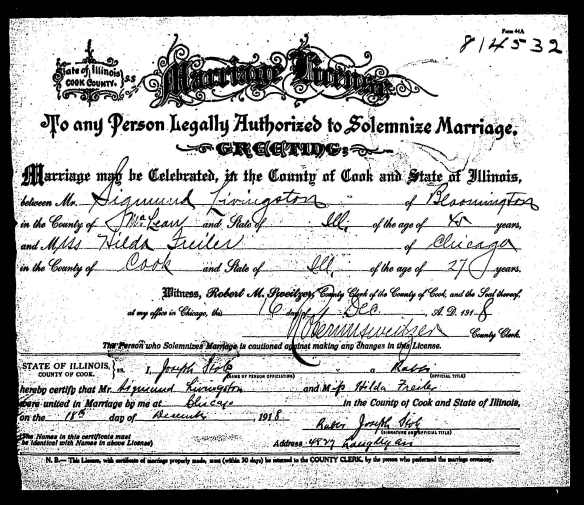 Form 44A
814532
State of Illinois
COOK COUNTY. } SS
Marriage License
To any Person Legally Authorized to Solemnize Marriage.
GREETING:
Marriage may be Celebrated, in the County of Cook and State of Illinois,
between Mr. Sigmund Livingston " of Bloomington
in the County of McLean and State of Ill. of the age of 45 years,
and Miss Hilda Freiler of Chicago
in the County of Cook and State of Ill. of the age of 27 years.
Witness, Robert M. Sweitzer, County Clerk of the County of Cook, and the Seal thereof,
at my office in Chicago, this 16 day of Dec. A. D. 1918
Robert M Sweitzer County Clerk.
The Person who Solemnizes Marriage is cautioned against making any changes in this License.
STATE OF ILLINOIS, } ss. I, Joseph Stolz a Rabbi
COUNTY OF COOK. (NAME OF PERSON OFFICIATING) (OFFICIAL TITLE)
hereby certify that Mr. Sigmund Livingston and Miss Hilda Freiler
were united in Marriage by me at Chicago in the County of Cook and State of Illinois,
on the 18th day of December 1918
Rabbi Joseph Stolz
(The Names in this certificate must (SIGNATURE AND OFFICIAL TITLE)
be identical with Names in above License) Address 4827 Langley av
N. B.— This License, with certificate of marriage properly made, must (within 30 days) be returned to the COUNTY CLERK, by the person who performed the marriage ceremony.